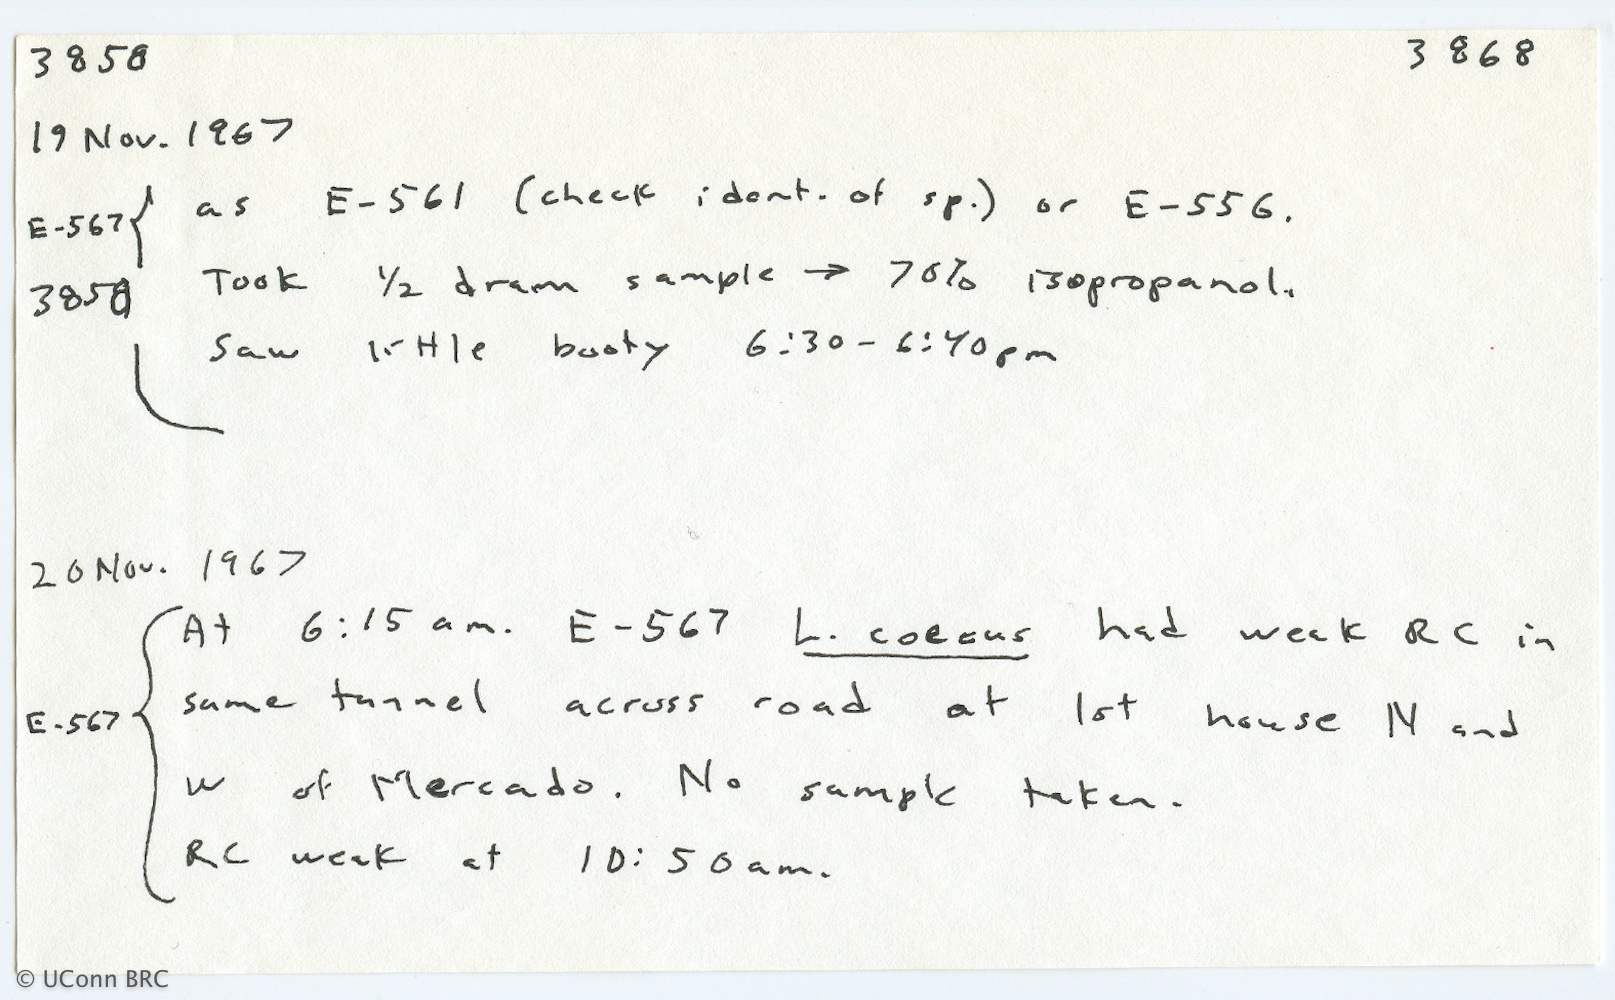 3850 3868
19 Nov. 1967
E-567 as E-561 (check ident. of sp.) or E-556.
3850 Took 1/2 dram sample → 70% isopropanol.
Saw little booty 6:30-6:40pm
20 Nov. 1967
At 6:15 am. E-567 L. coecus had weak RC in
E-567 same tunnel across road at 1st house N and
W of Mercado. No sample taken.
RC weak at 10:50am.
© UConn BRC